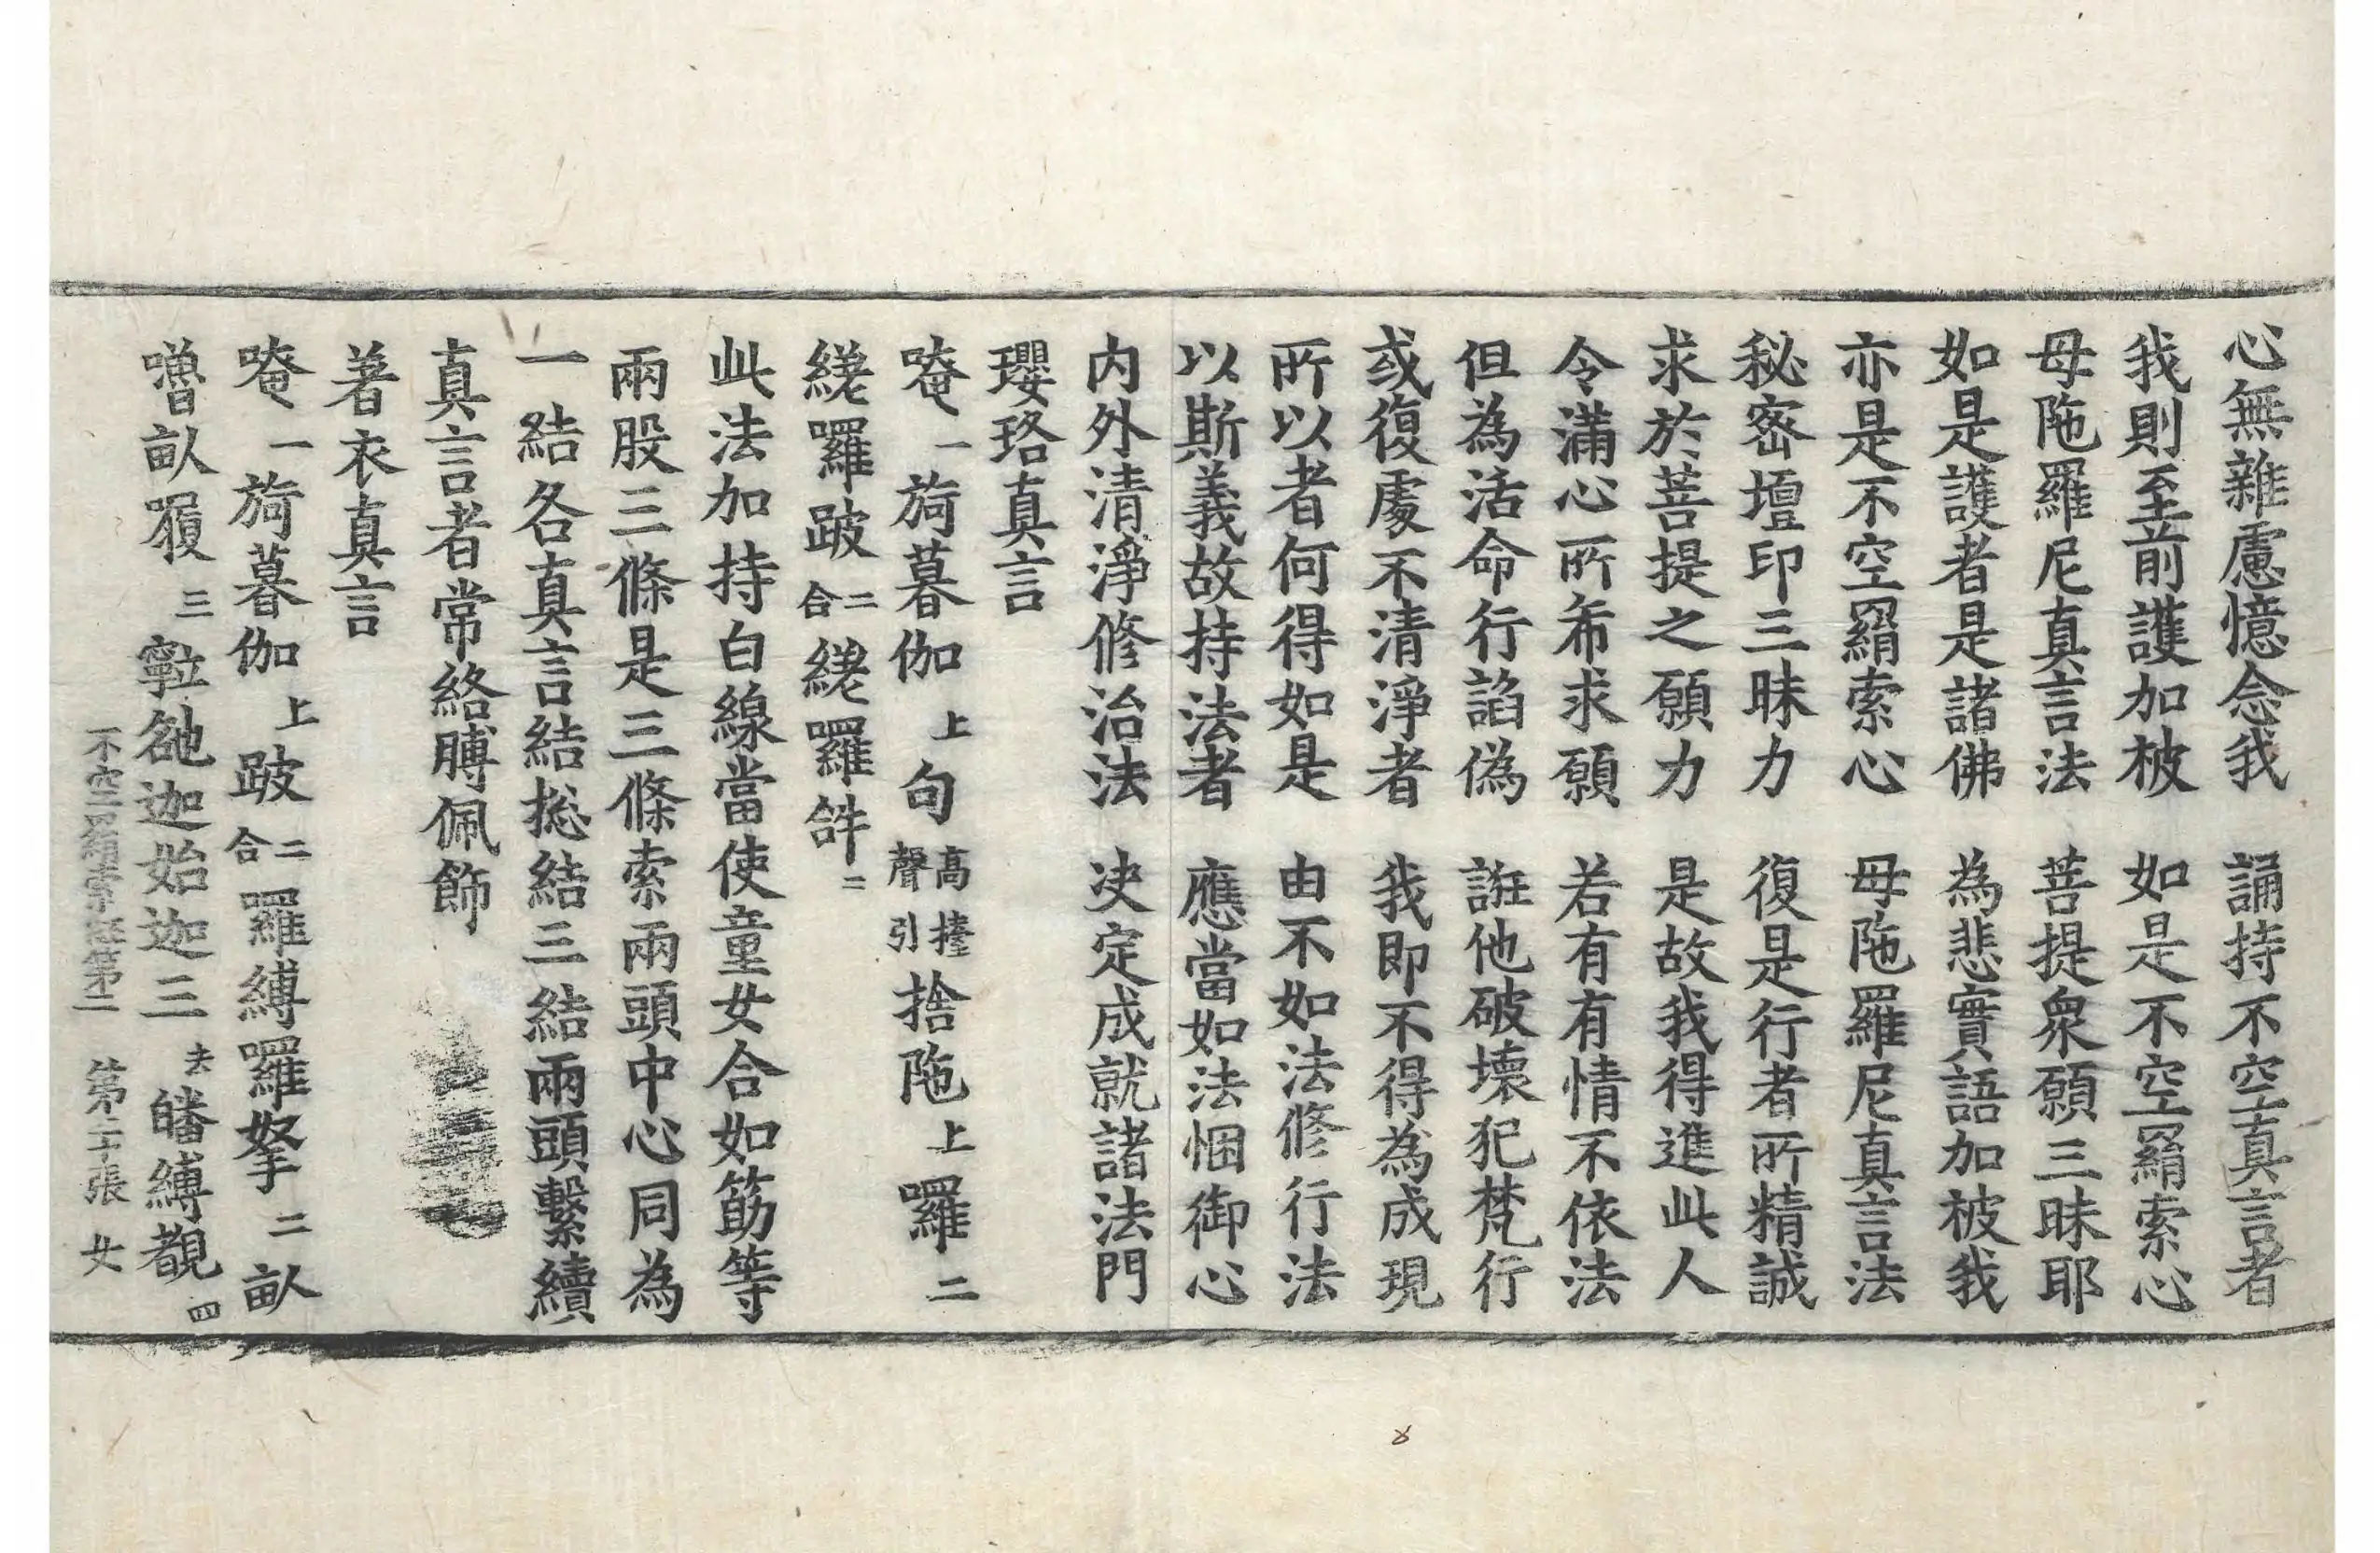 心無雜慮憶念我　誦持不空真言者
我則至前護加被　如是不空羂索心
母陁羅尼真言法　菩提衆願三昧耶
如是護者是諸佛　為悲實語加被我
亦是不空羂索心　母陁羅尼真言法
秘密壇印三昧力　復是行者所精誠
求於菩提之願力　是故我得進此人
令滿心所希求願　若有有情不依法
但為活命行諂偽　誑他破壞犯梵行
或復處不清淨者　我即不得為成現
所以者何得如是　由不如法修行法
以斯義故持法者　應當如法悃御心
内外清淨修治法　决定成就諸法門
瓔珞真言
唵一旖暮伽上句高聲擡引捨陁上囉二
繼囉跛二合繼囉䤈二
此法加持白線當使童女合如筯等
兩股三條是三條索兩頭中心同為
一結各真言結捴結三結兩頭繫續
真言者常絡膊佩飾
著衣真言
唵一旖暮伽上跛二合囉縛囉拏二畝
嚕畝履三𩕳矺迦始迦三去皤縛覩四
不空羂索經第二　第二十張　女